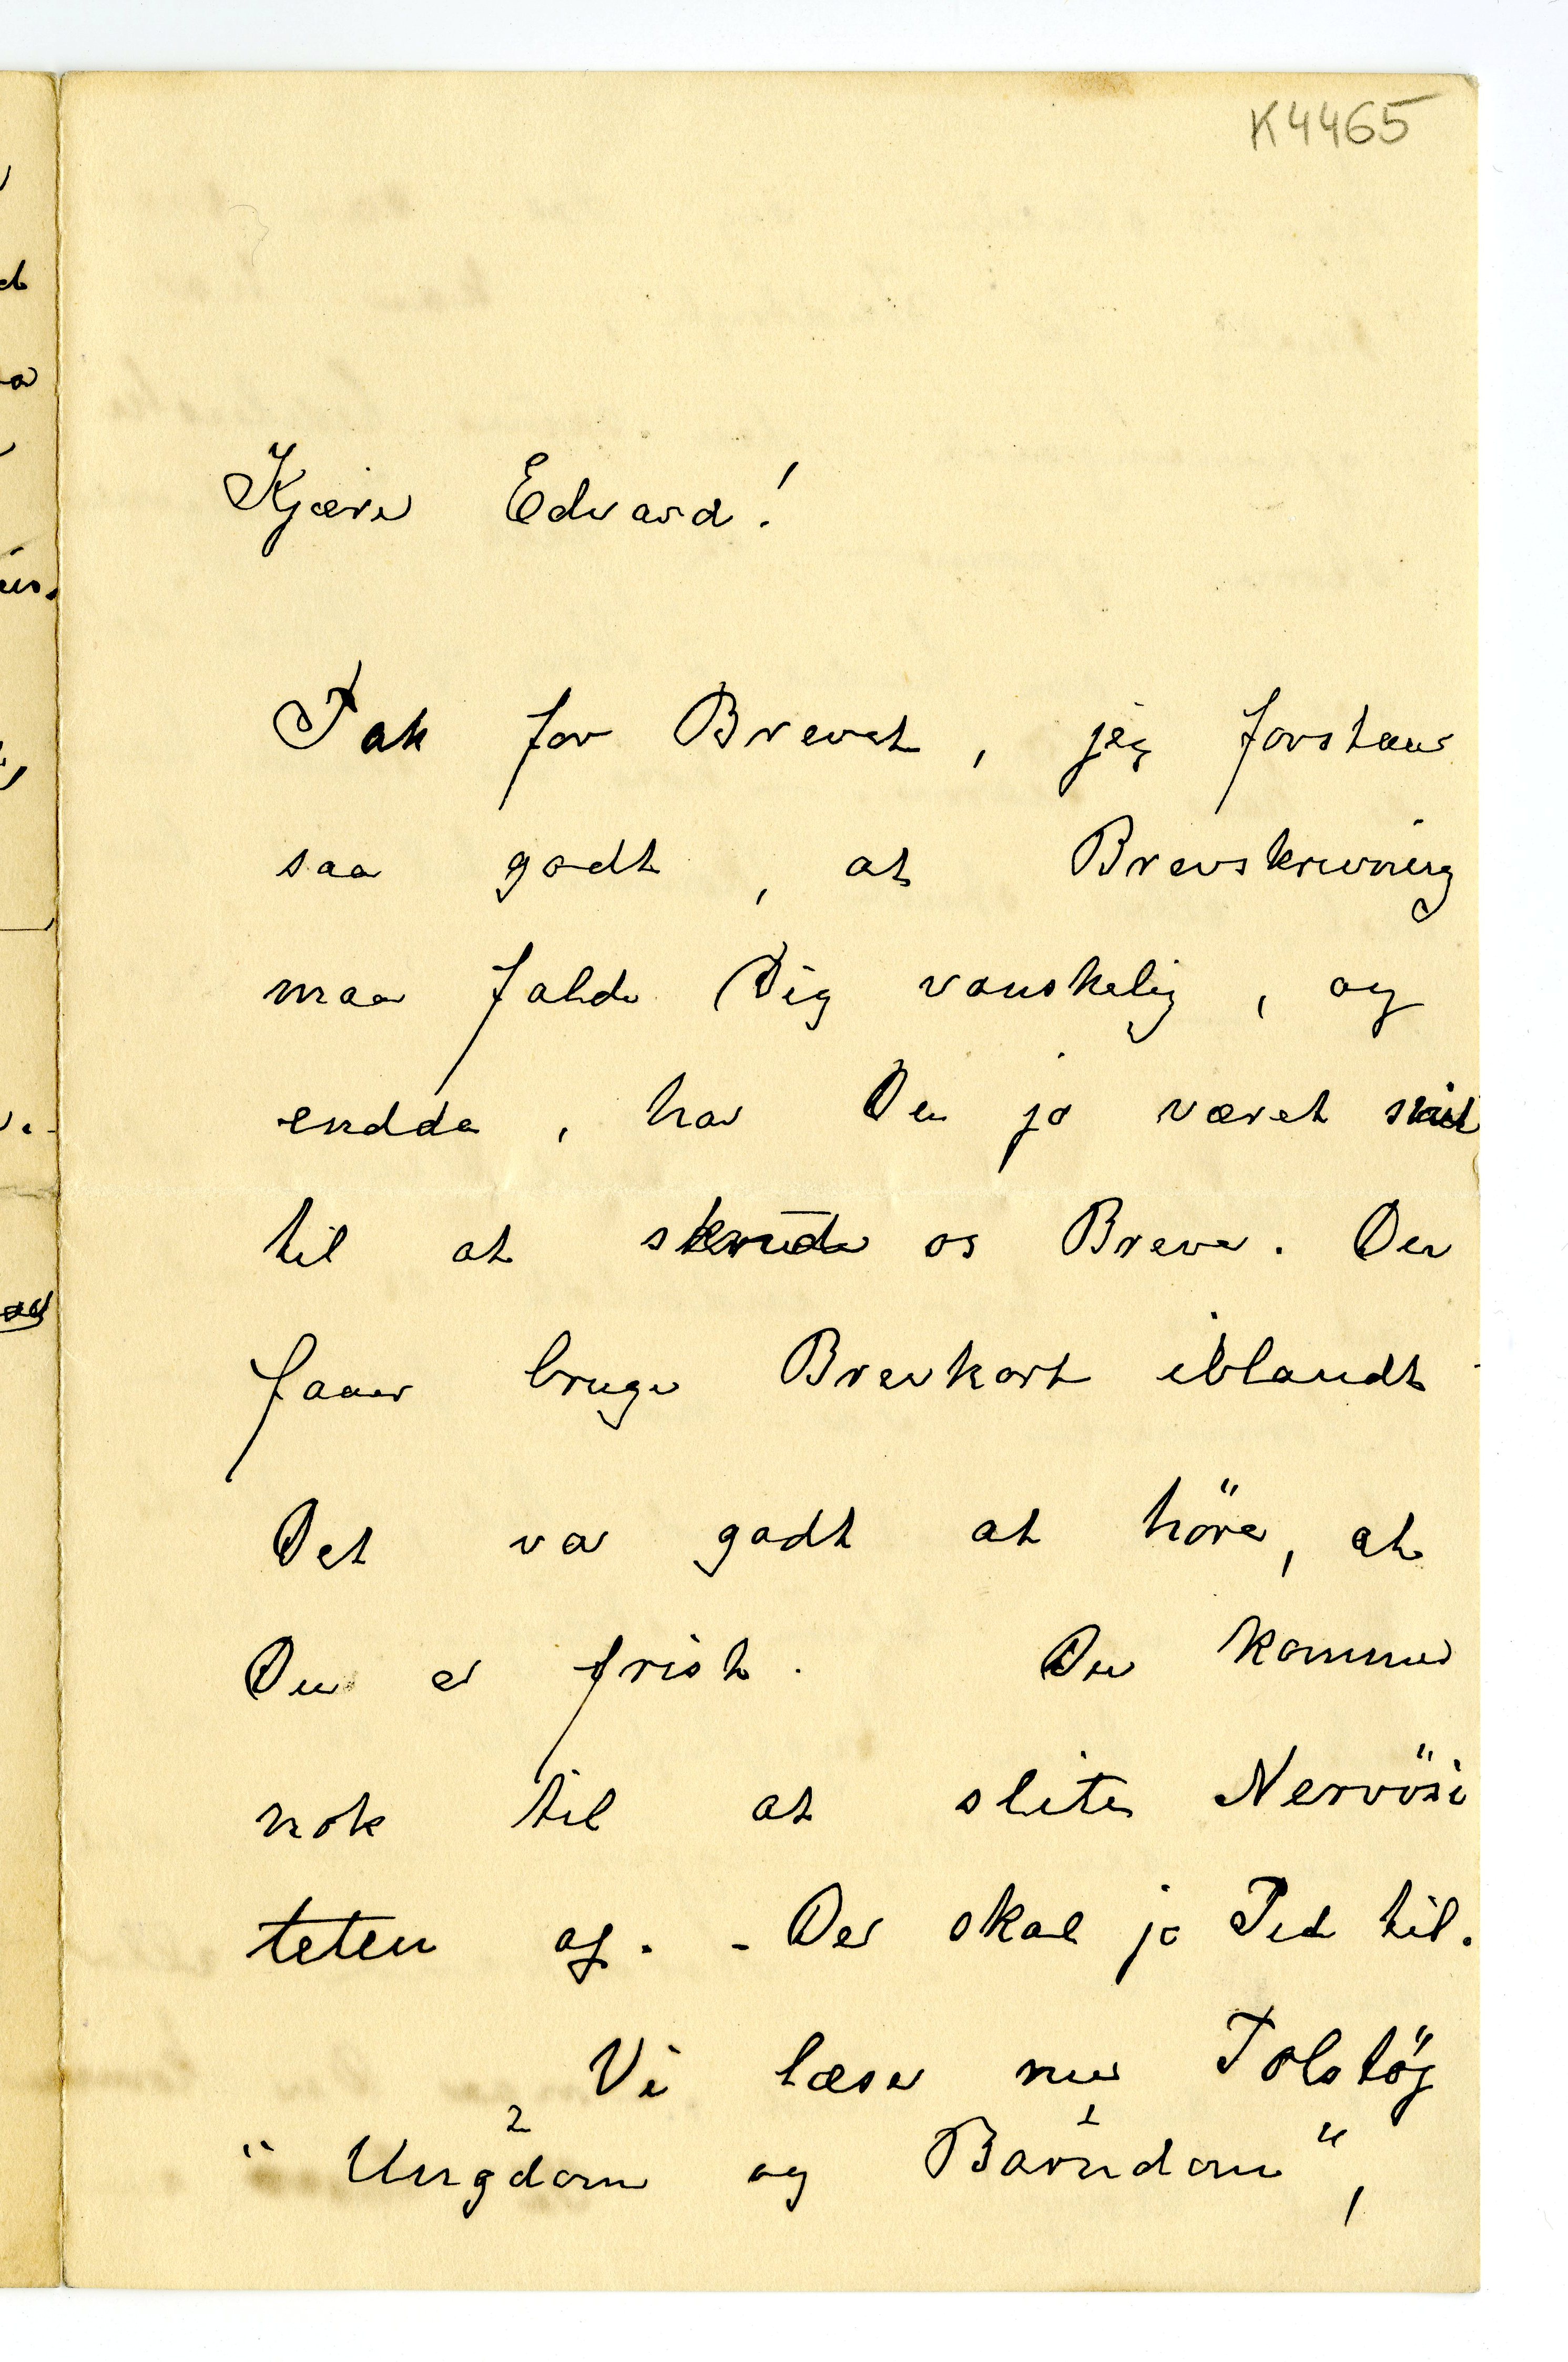 K4465
Kjære Edvard!
Tak for Brevet, jeg forstaar
saa godt, at Brevskrivning
maa falde Dig vanskelig, og
endda, har Du ja været
til at os Breve. Du
faaer bruge Brevkort iblandt
Det var godt at höre, at
Du er frisk. Du kommer
nok til at slite Nervösi
teten af. - Der skal jo Tid til.
Vi læser nu Tolstöj
2 1
"Ungdom og Barndom",